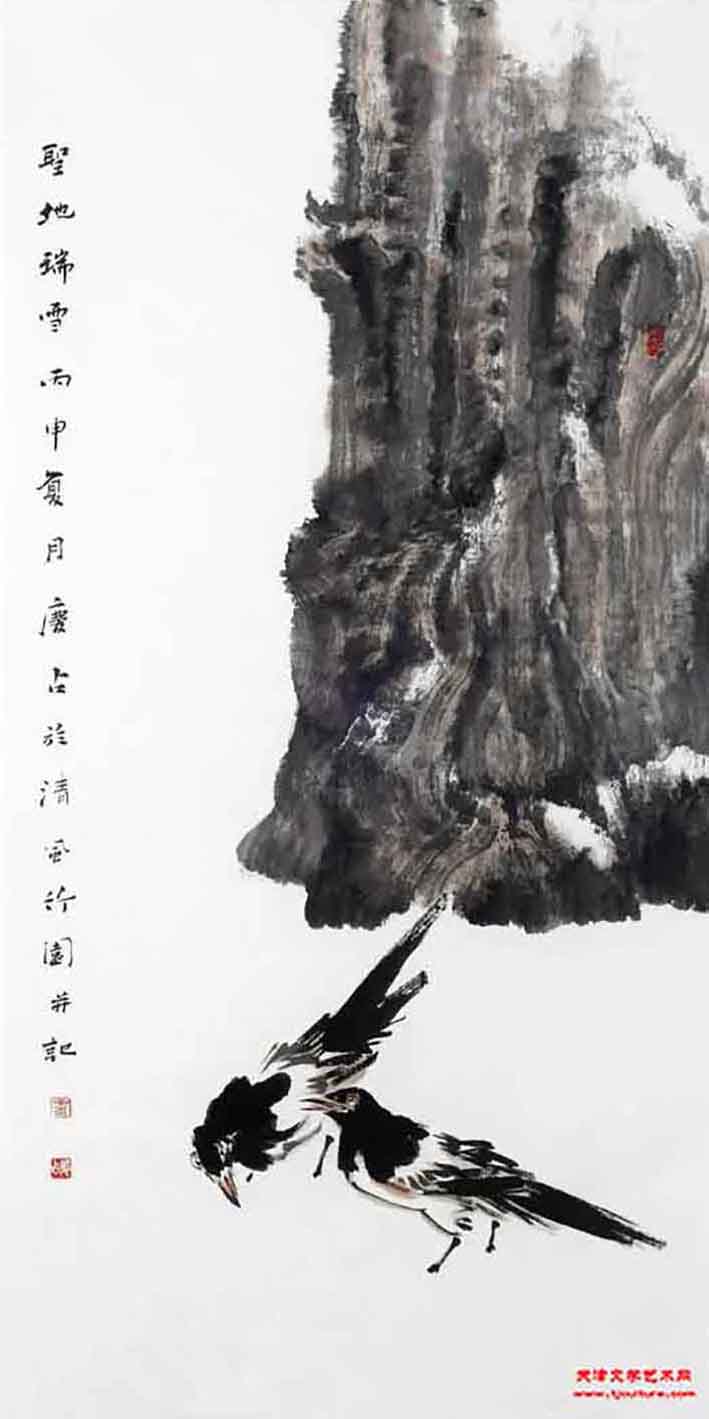 聖地瑞雪丙申夏月慶占於清風竹園并記
天津文学艺术网
www.tjculture.com